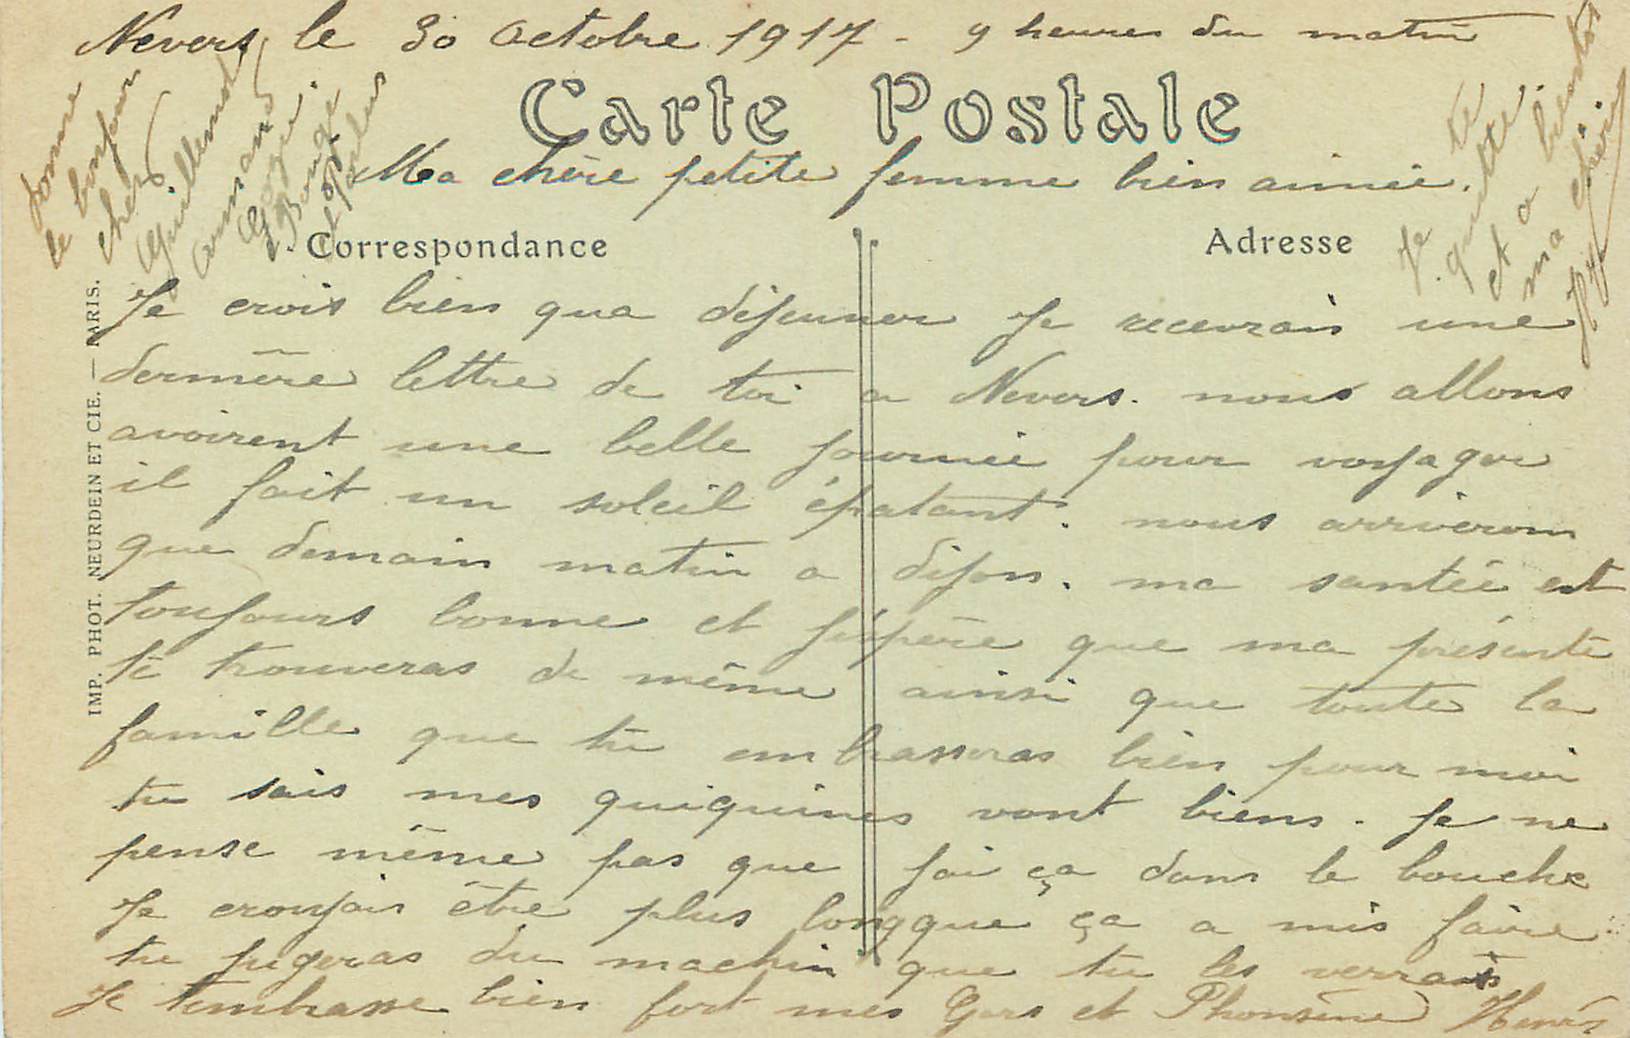 Nevers le 30 Octobre 1917 - 9 heures du matin
Carte Postale
Ma chère petite femme bien aimée.
Correspondance
Adresse
Je crois bien qua déjeuner je recevrais une
dernière lettre de toi a Nevers. nous allons
avoirent une belle journée pour voyager
il fait un soleil épatant. nous arriverons
que demain matin a dijon. ma santée est
toujours bonne et j'éspère que ma présente
te trouveras de même ainsi que toute la
famille que tu embrasseras bien pour moi
tu sais mes quiquines vont biens. je ne
pense même pas que j'ai ça dans le bouche
Je croyais être plus long que ça a mis faire
tu jugeras du machin que tu les verrais
Je t'embrasse bien fort mes Gars et Phonsine Henri
donne
le bonjour
chers
Guillemot
Armand
et
Je te
quitte.
et a bientôt
ma chérie
IMP. PHOT. NEURDEIN ET CIE. — PARIS.